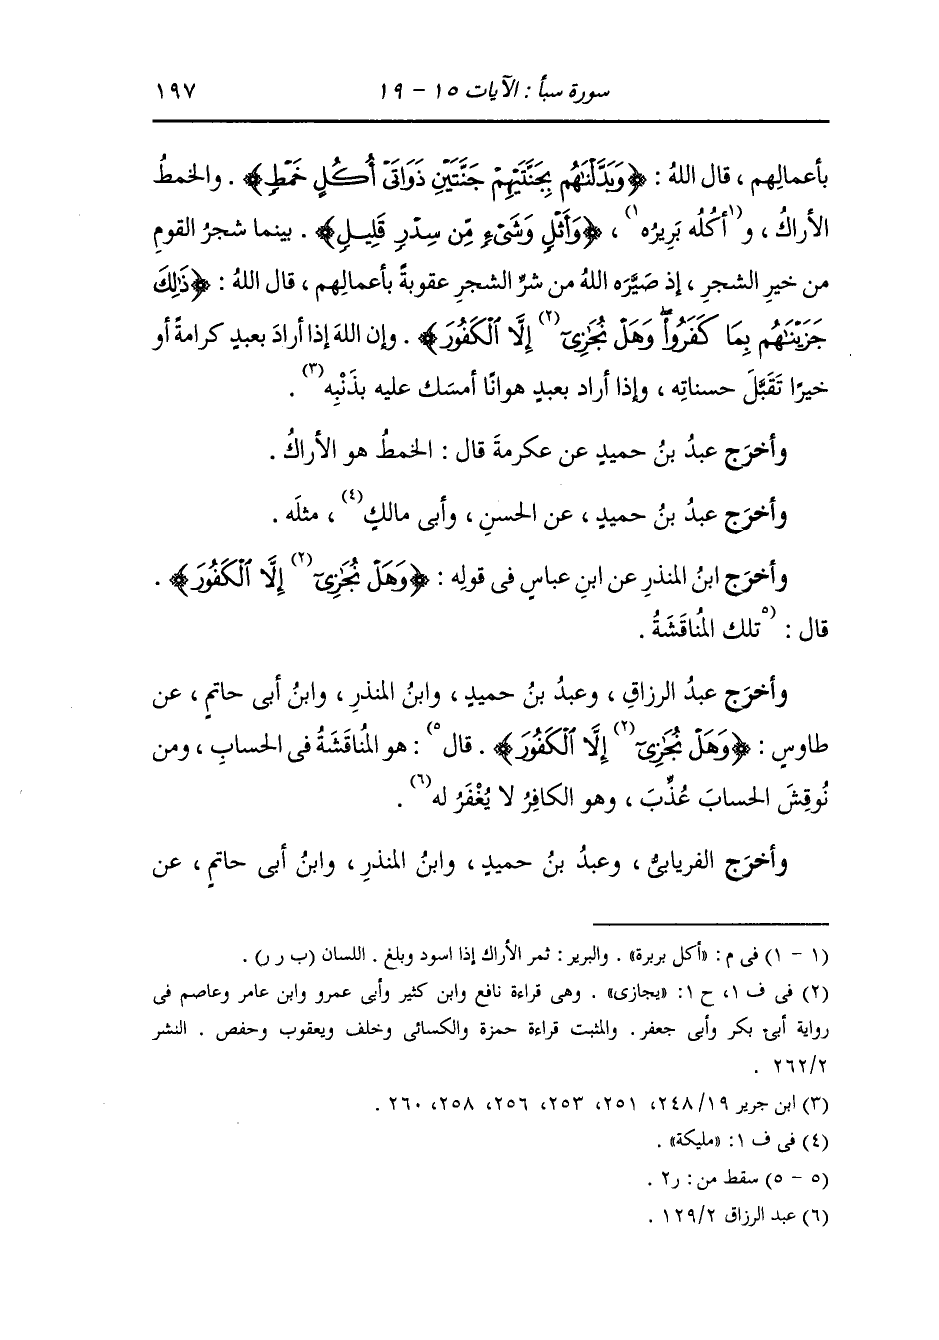 سورة سبأ : الآيات ١٥ - ١٩ ١٩٧
بأعمالِهم ، قال اللهُ : ﴿وَبَدَّلْنَٰهُم بِجَنَّتَيْهِمْ جَنَّتَيْنِ ذَوَاتَىْ أُكُلٍ خَمْطٍ﴾ . والخمطُ
الأراكُ ، و(١أكُلُه بَرِيرُه١) ، ﴿وَأَثْلٍ وَشَىْءٍ مِّن سِدْرٍ قَلِيلٍ﴾ . بينما شجرُ القومِ
من خيرِ الشجرِ ، إذ صَيَّرَه اللهُ من شرِّ الشجرِ عقوبةً بأعمالِهم ، قال اللهُ : ﴿ذَٰلِكَ
جَزَيْنَٰهُم بِمَا كَفَرُواْ ۖ وَهَلْ نُجَٰزِىٓ(٢) إِلَّا ٱلْكَفُورَ﴾ . وإن اللهَ إذا أرادَ بعبدٍ كرامةً أو
خيرًا تَقَبَّلَ حسناتِه ، وإذا أراد بعبدٍ هوانًا أمسَك عليه بذَنْبِه(٣) .
وأخرَج عبدُ بنُ حميدٍ عن عكرمةَ قال : الخمطُ هو الأراكُ .
وأخرَج عبدُ بنُ حميدٍ ، عن الحسنِ ، وأبى مالكٍ(٤) ، مثلَه .
وأخرَج ابنُ المنذرِ عن ابنِ عباسٍ فى قولِه : ﴿وَهَلْ نُجَٰزِىٓ(٢) إِلَّا ٱلْكَفُورَ﴾ .
قال : (٥تلك المُناقَشَةُ .
وأخرَج عبدُ الرزاقِ ، وعبدُ بنُ حميدٍ ، وابنُ المنذرِ ، وابنُ أبى حاتمٍ ، عن
طاوسٍ : ﴿وَهَلْ نُجَٰزِىٓ(٢) إِلَّا ٱلْكَفُورَ﴾ . قال٥) : هو المُناقَشَةُ فى الحسابِ ، ومن
نُوقِشَ الحسابَ عُذِّبَ ، وهو الكافِرُ لا يُغْفَرُ له(٦) .
وأخرَج الفريابىُّ ، وعبدُ بنُ حميدٍ ، وابنُ المنذرِ ، وابنُ أبى حاتمٍ ، عن
(١ - ١) فى م : «أكل بربرة» . والبرير : ثمر الأراك إذا اسود وبلغ . اللسان (ب ر ر) .
(٢) فى ف ١، ح ١: «يجازى» . وهى قراءة نافع وابن كثير وأبى عمرو وابن عامر وعاصم فى
رواية أبى بكر وأبى جعفر. والمثبت قراءة حمزة والكسائى وخلف ويعقوب وحفص . النشر
٢٦٢/٢ .
(٣) ابن جرير ٢٤٨/١٩، ٢٥١، ٢٥٣، ٢٥٦، ٢٥٨، ٢٦٠ .
(٤) فى ف ١: «مليكة» .
(٥ - ٥) سقط من : ر٢ .
(٦) عبد الرزاق ١٢٩/٢ .